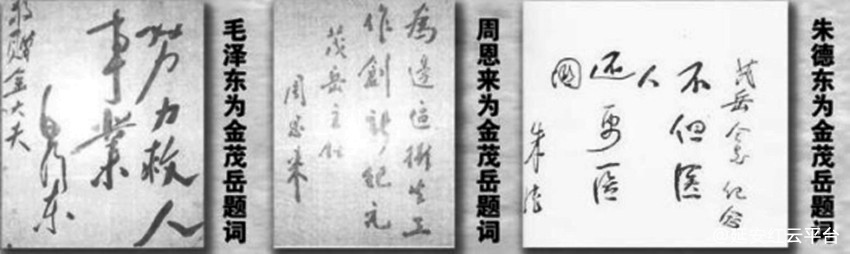 努力救人
事業
毛澤東
贈金大夫
毛泽东为金茂岳题词
為邊區衛生工
作創新紀元
茂岳主任
周恩来
周恩来为金茂岳题词
茂岳仝志 纪念
不但医
人
还要医
国
朱德
朱德东为金茂岳题词
云平台